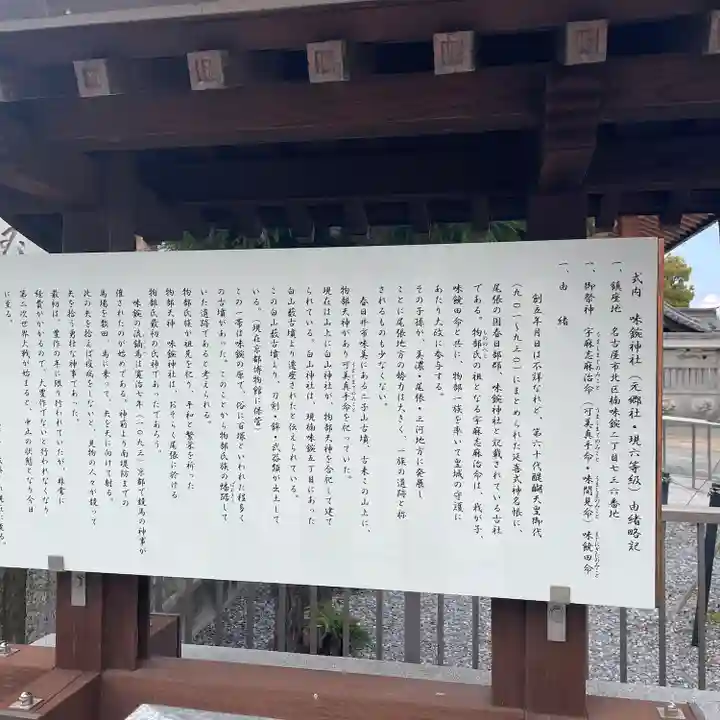 式内 味鋺神社（元郷社・現六等級）由緒略記
一、鎮座地 名古屋市北区楠味鋺二丁目七三六番地
一、御祭神 宇麻志麻治命（可美真手命・味間見命）味饒田命
一、由緒
創立年月日は不詳なれど、第六十代醍醐天皇御代
（九〇一〜九三一）にまとめられた延喜式神名帳に、
尾張の国春日部郡、味鋺神社と記載されている古社
である。物部氏の祖となる宇麻志麻治命は、我が子、
味饒田命と共に、物部一族を率いて皇城の守護に
あたり大政に参与する。
その子孫が、美濃・尾張・三河地方に発展し
ことに尾張地方の勢力は大きく、一族の遺跡と称
されるものも少なくない。
春日井市味美にある二子山古墳、古来この山上に、
物部天神があり可美真手命を祀っていた。
現在は山上に白山神社が、物部天神を合祀して建て
られている。白山神社は、現楠味鋺五丁目にあった
白山薮古墳より遷座されたと伝えられている。
この白山薮古墳より、刀剣・鉾・武器類が出土して
いる。（現在京都博物館に保管）
この一帯は味鋺の原で、俗に百塚といわれた程多く
の古墳があった。このことから物部氏族の播踞して
いた遺跡であると考えられる。
物部氏族が祖見を祀り、平和と繁栄を祈った
物部天神 味鋺神社は、おそらく尾張に於ける
物部氏最初の氏神であったであろう。
味鋺の流鏑馬は寛治七年（一〇九三）京都で競馬の神事が
催されたのが始めである。神前より南堤防までの
馬場を数回 馬に乗って、矢を天に向けて射る。
此の矢を拾えば疫病をしないと、見物の人々が競って
矢を拾う勇壮な神事であった。
最初は、豊作の年に限り行われていたが、非常に
経費がかかるので、大豊作でないと行われなくなり
第二次世界大戦が始まると、中止の状態となり今日
に至る。